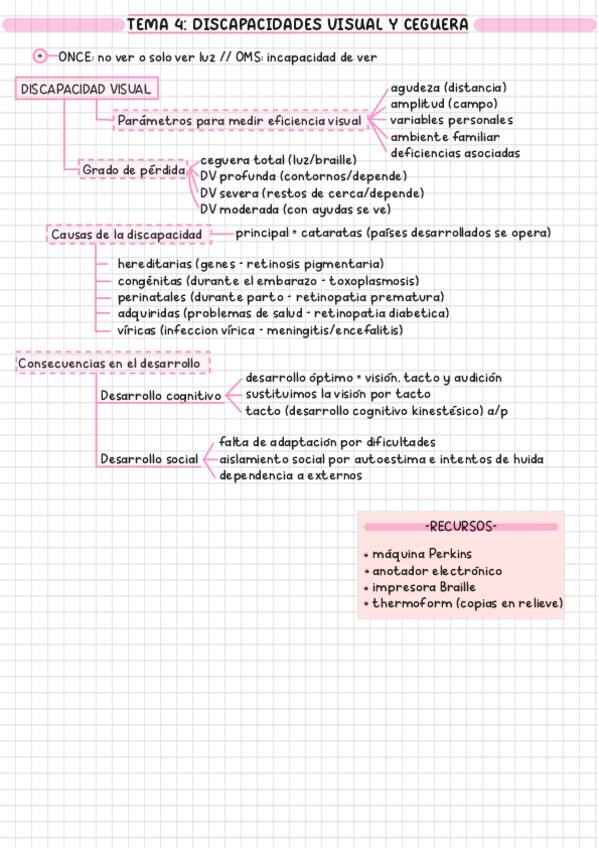 TEMA 4: DISCAPACIDADES VISUAL Y CEGUERA
* ONCE: no ver o solo ver luz // OMS: incapacidad de ver
DISCAPACIDAD VISUAL
Parámetros para medir eficiencia visual
agudeza (distancia)
amplitud (campo)
variables personales
ambiente familiar
deficiencias asociadas
Grado de pérdida
ceguera total (luz/braille)
DV profunda (contornos/depende)
DV severa (restos de cerca/depende)
DV moderada (con ayudas se ve)
Causas de la discapacidad
principal = cataratas (países desarrollados se opera)
hereditarias (genes - retinosis pigmentaria)
congénitas (durante el embarazo - toxoplasmosis)
perinatales (durante parto - retinopatia prematura)
adquiridas (problemas de salud - retinopatia diabetica)
víricas (infeccion vírica - meningitis/encefalitis)
Consecuencias en el desarrollo
Desarrollo cognitivo
desarrollo óptimo = visión, tacto y audición
sustituimos la visión por tacto
tacto (desarrollo cognitivo kinestésico) a/p
Desarrollo social
falta de adaptación por dificultades
aislamiento social por autoestima e intentos de huida
dependencia a externos
-RECURSOS-
* máquina Perkins
* anotador electrónico
* impresora Braille
* thermoform (copias en relieve)